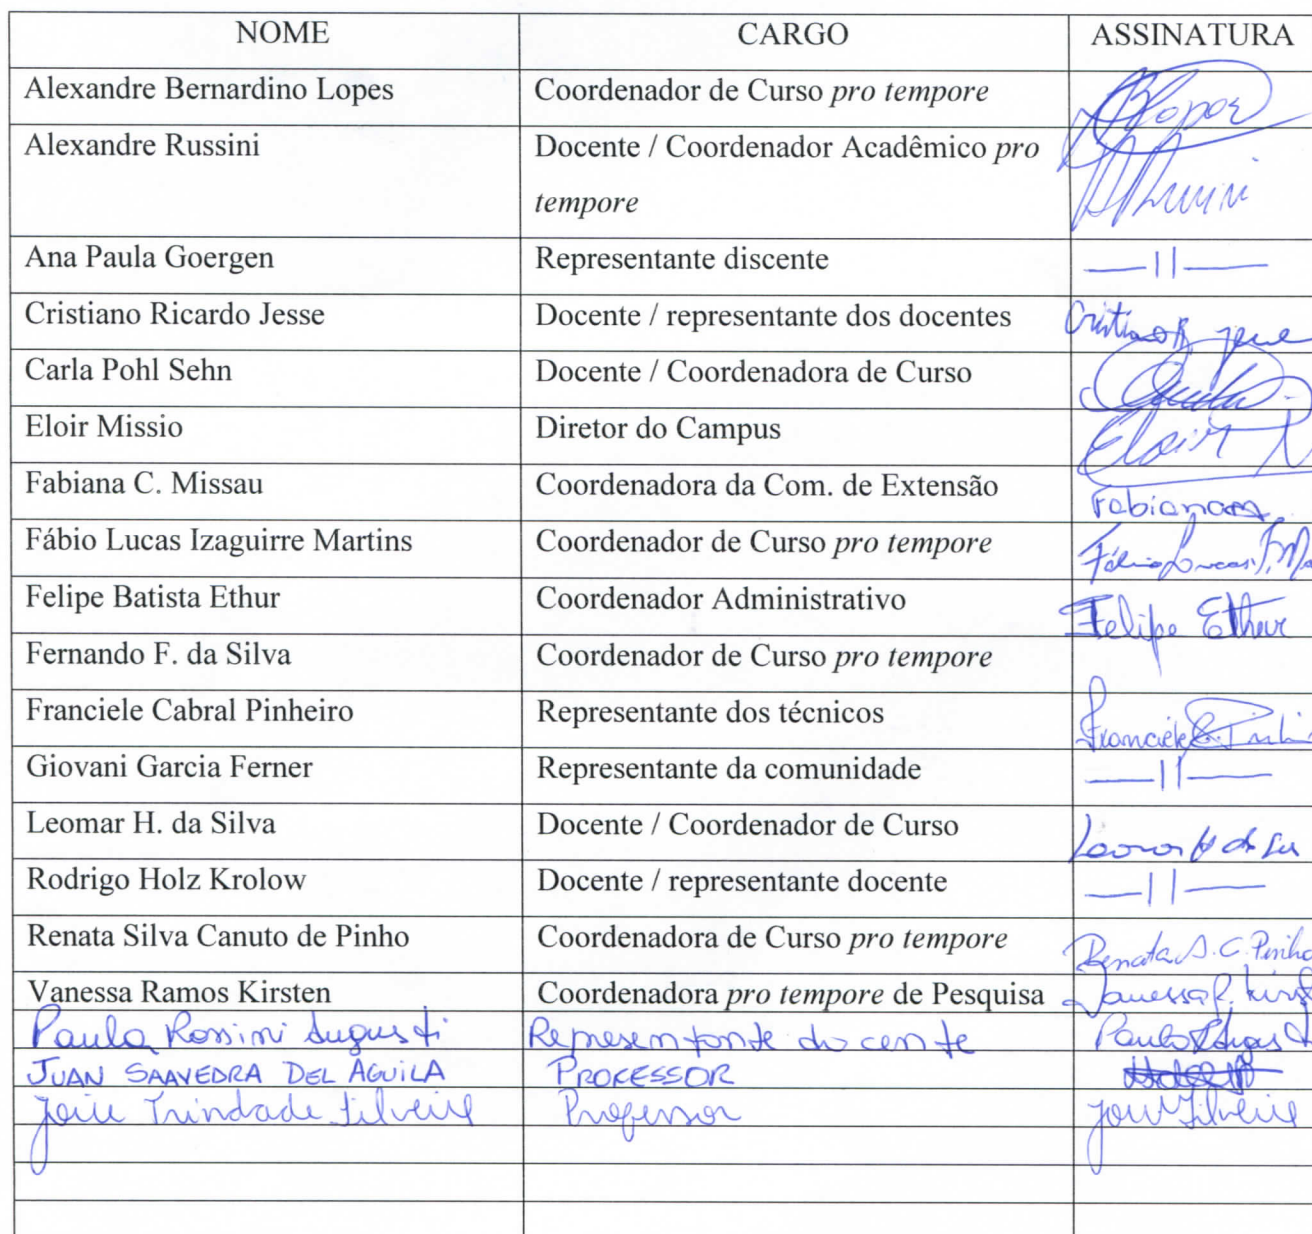 NOME CARGO ASSINATURA
Alexandre Bernardino Lopes Coordenador de Curso pro tempore
Alexandre Russini Docente / Coordenador Acadêmico pro
tempore
Ana Paula Goergen Representante discente —11—
Cristiano Ricardo Jesse Docente / representante dos docentes
Carla Pohl Sehn Docente / Coordenadora de Curso
Eloir Missio Diretor do Campus
Fabiana C. Missau Coordenadora da Com. de Extensão
Fábio Lucas Izaguirre Martins Coordenador de Curso pro tempore
Felipe Batista Ethur Coordenador Administrativo Felipe Ethur
Fernando F. da Silva Coordenador de Curso pro tempore
Franciele Cabral Pinheiro Representante dos técnicos
Giovani Garcia Ferner Representante da comunidade —11—
Leomar H. da Silva Docente / Coordenador de Curso
Rodrigo Holz Krolow Docente / representante docente —11—
Renata Silva Canuto de Pinho Coordenadora de Curso pro tempore Renata S. C. Pinho
Vanessa Ramos Kirsten Coordenadora pro tempore de Pesquisa Vanessa R.
Paula Rossini Augusti Representante docente
JUAN SAAVEDRA DEL AGUILA PROFESSOR
Trindade Silveira Professor Silveira